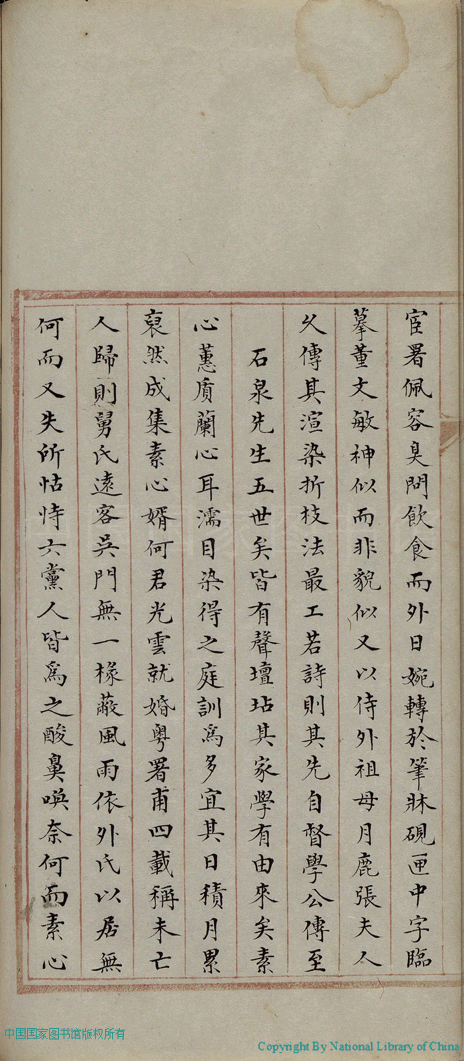 宦署佩容臭問飲食而外日婉轉於筆牀硯匣中字臨
摹董文敏神似而非貌似又以侍外祖母月鹿張夫人
久傳其渲染折枝法最工若詩則其先自督學公傳至
石泉先生五世矣皆有聲壇坫其家學有由來矣素
心蕙質蘭心耳濡目染得之庭訓為多宜其日積月累
裒然成集素心婿何君光雲就婚粵署甫四載稱未亡
人歸則舅氏遠客吳門無一椽蔽風雨依外氏以居無
何而又失所怙恃六黨人皆為之酸鼻喚奈何而素心
中国国家图书馆版权所有
Copyright By National Library of China